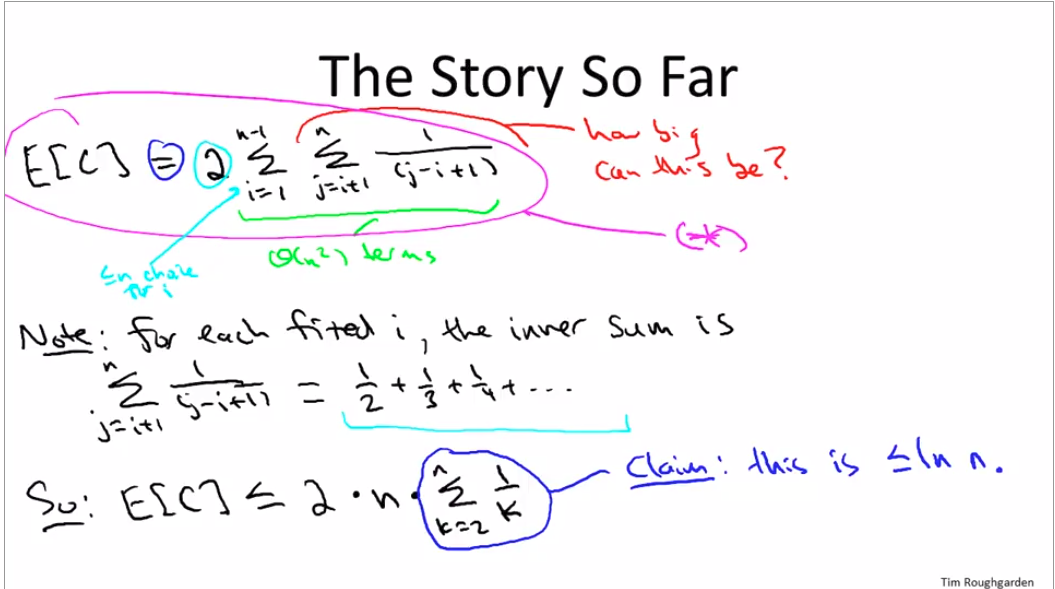 The Story So Far
E[C] = 2 \sum_{i=1}^{n-1} \sum_{j=i+1}^{n} \frac{1}{(j-i+1)}
how big
can this be?
(*)
Θ(n²) terms
≤n choice
for i
Note: for each fixed i, the inner sum is
\sum_{j=i+1}^{n} \frac{1}{(j-i+1)} = \frac{1}{2} + \frac{1}{3} + \frac{1}{4} + ...
So: E[C] ≤ 2 · n · \sum_{k=2}^{n} \frac{1}{k}
Claim: this is ≤ ln n.
Tim Roughgarden